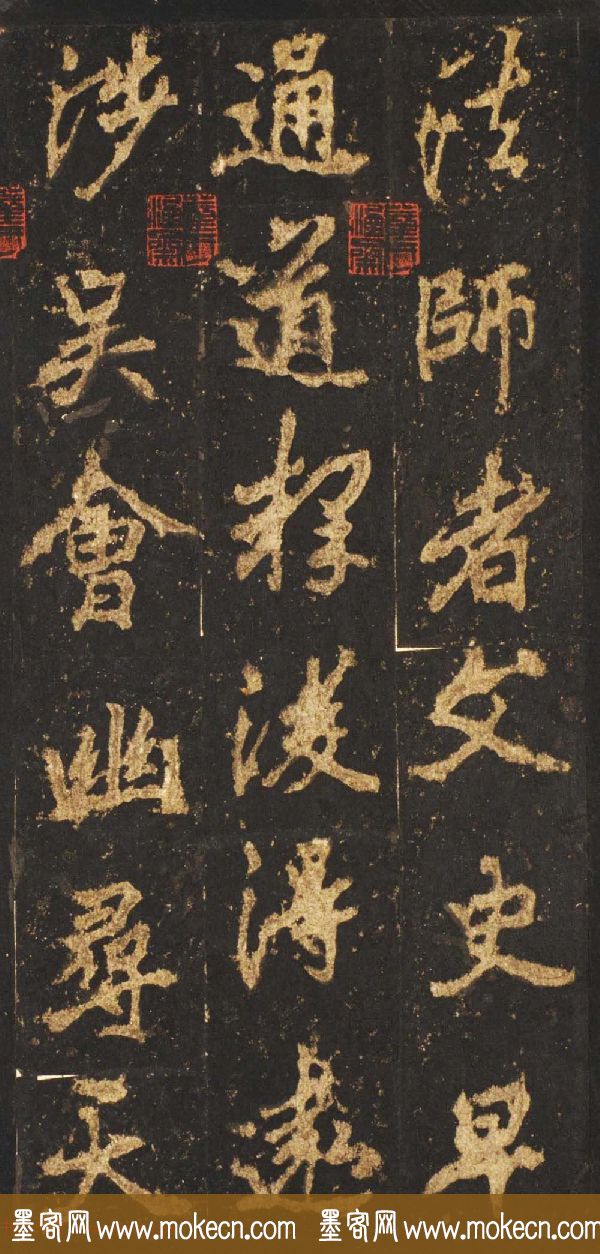 法師者文史早
通道釋後得遠
涉吳會幽尋天
墨客网 www.mokecn.com 墨客网 www.mokecn.com